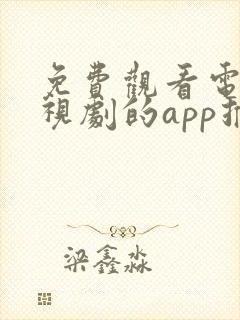 免費觀看電
視劇的app推
梁鑫淼